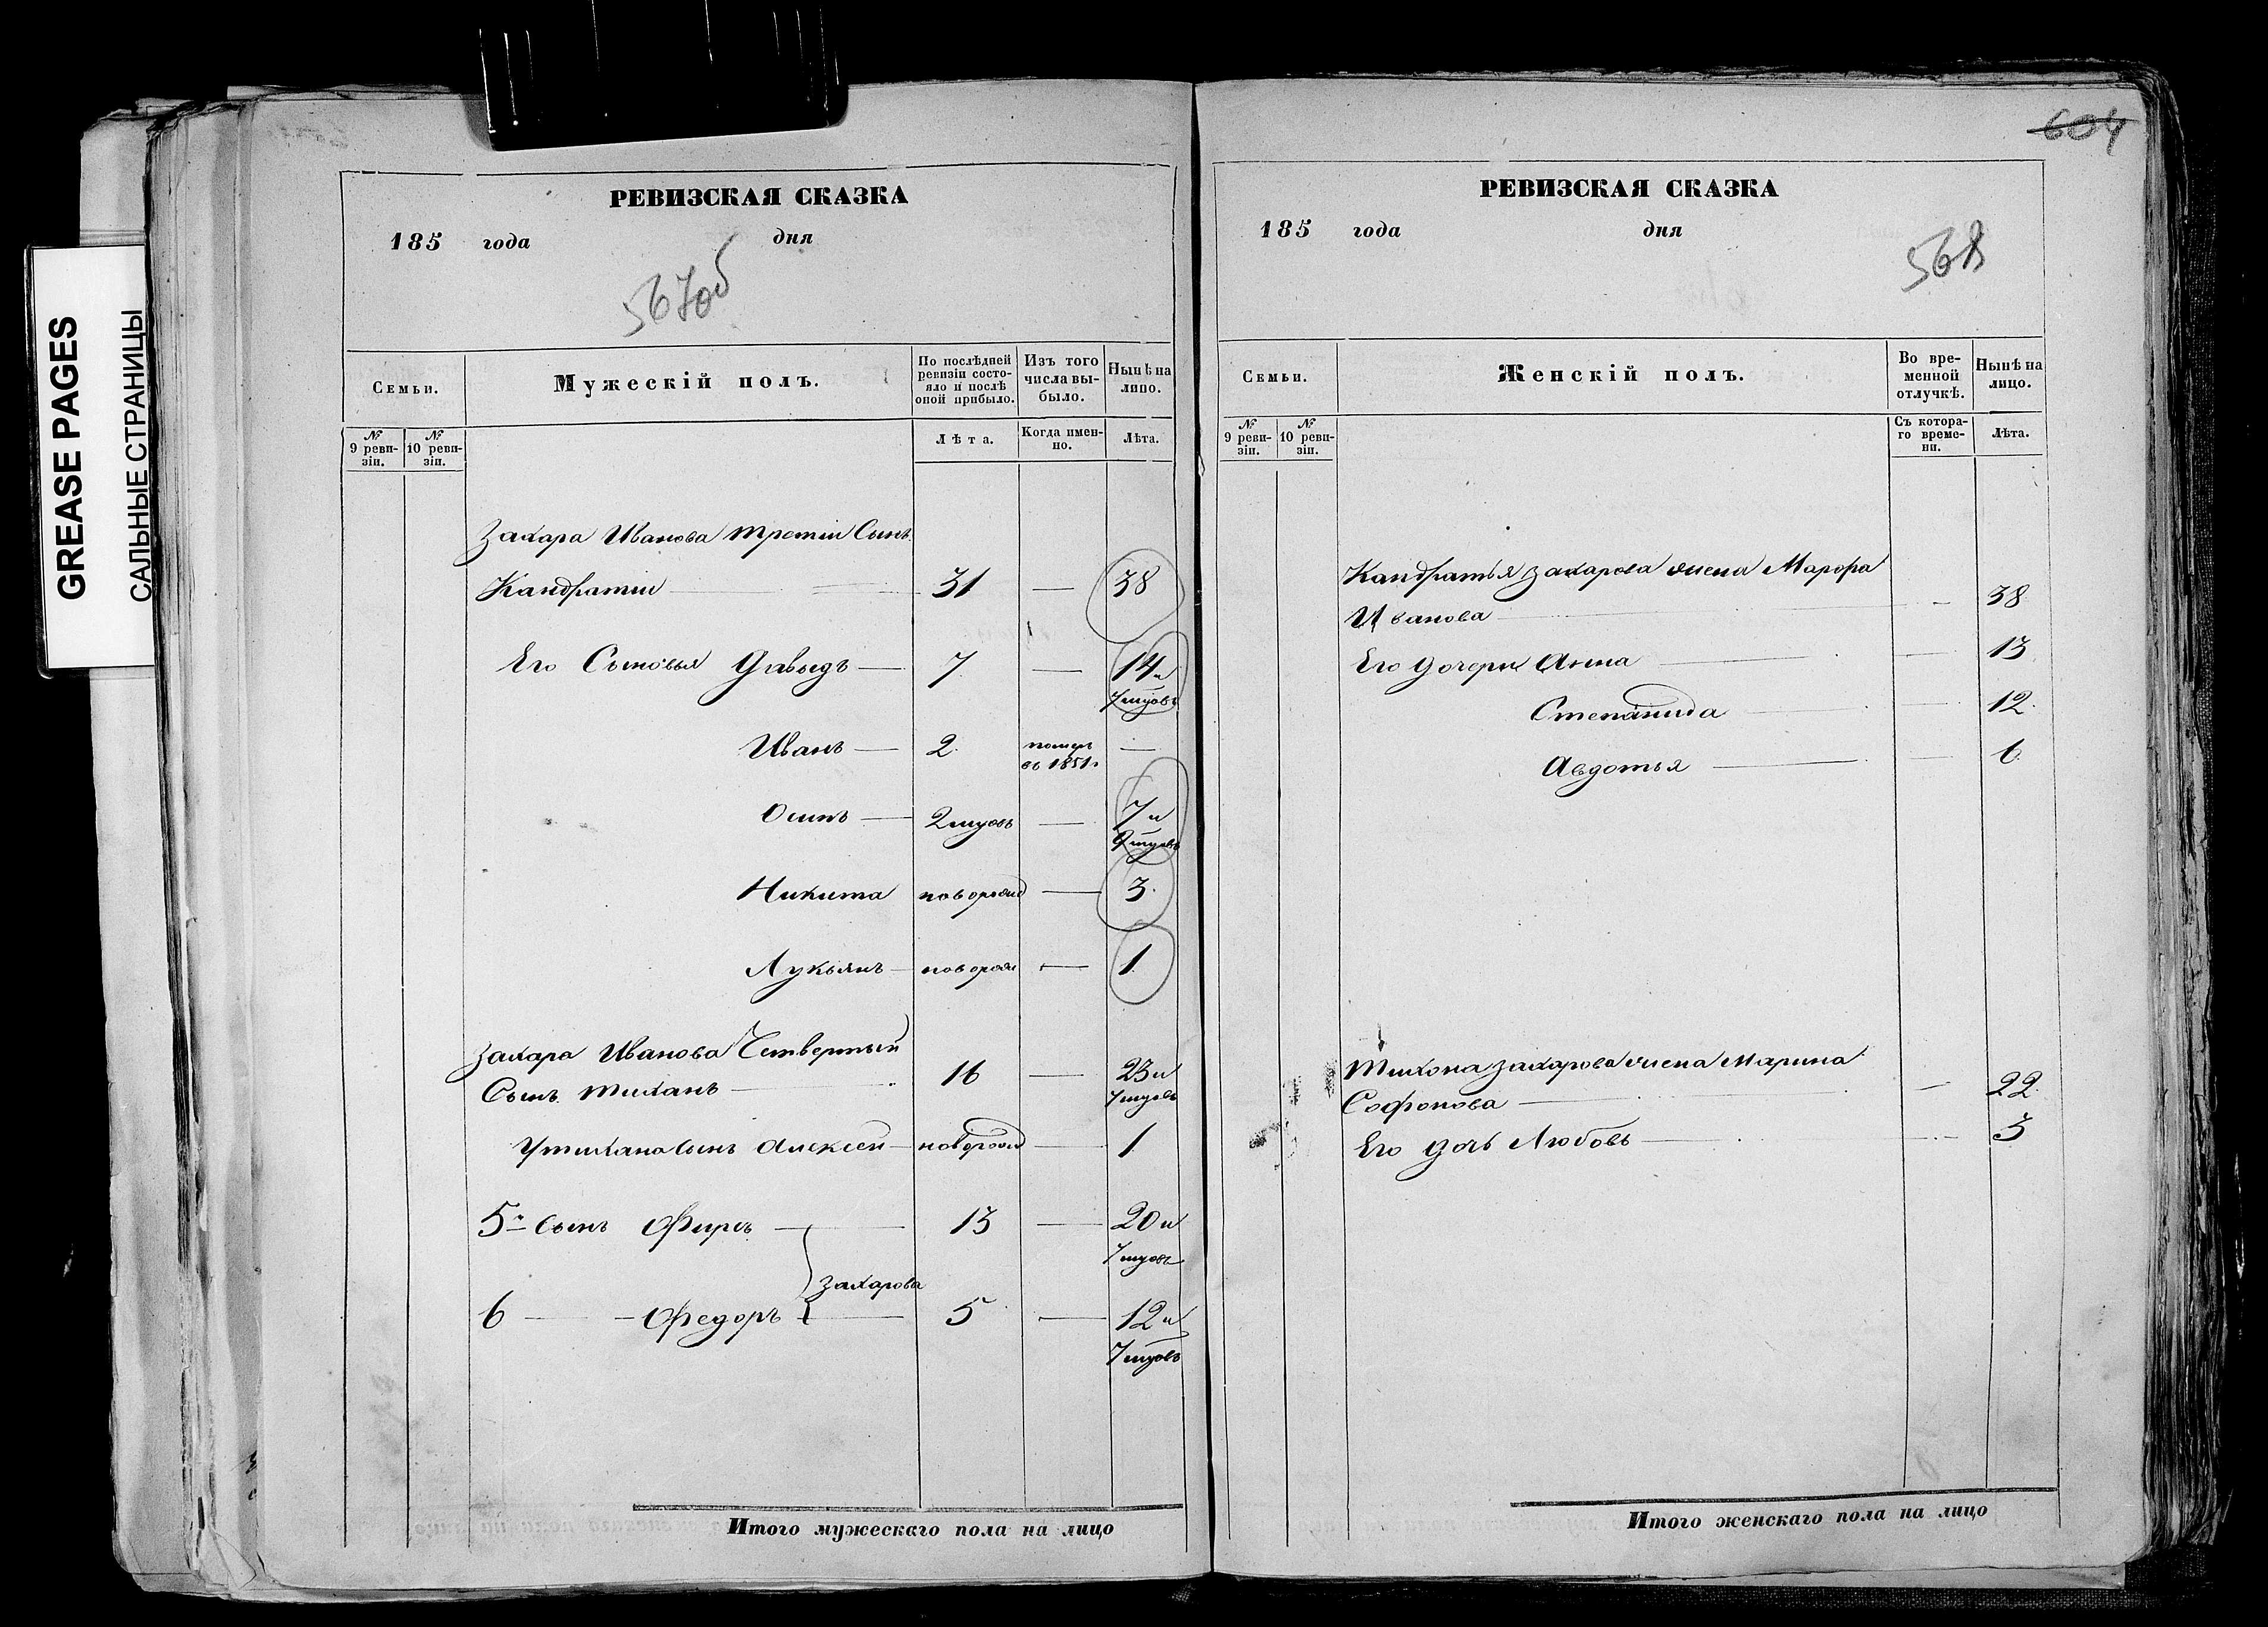 GREASE PAGES
САЛЬНЫЕ СТРАНИЦЫ
РЕВИЗСКАЯ СКАЗКА
185 года дня
567об
Семьи.
Мужескій полъ.
По послѣдней ревизіи состо-
яло и послѣ
оной прибыло.
Изъ того
числа вы-
было.
Нынѣ на
лицо.
№
9 реви-
зіи.
№
10 реви-
зіи.
Лѣта.
Когда имен-
но.
Лѣта.
Захара Иванова третіи Сынъ
Кандратіи 31 — 38
Его Сыновья Давыдъ — 7 — 14 и
7 мцовъ
Иванъ — 2 померъ —
въ 1851 г
Осипъ — 2 мцовъ — 7 и
9 мцовъ
Никита новорожд — 3.
Лукьянъ — новорож — 1
Захара Иванова Четвертый
Сынъ Тиханъ — 16 — 23 и
7 мцовъ
У Тихана сынъ Алексей — новорожд — 1
5й сынъ Фирсъ — 13 — 20 и
7 мцовъ
Захарова
6 — Федоръ — 5 — 12 и
7 мцовъ
Итого мужескаго пола на лицо
604
РЕВИЗСКАЯ СКАЗКА
185 года дня
568
Семьи.
Женскій полъ.
Во вре-
менной
отлучкѣ.
Нынѣ на
лицо.
№
9 реви-
зіи.
№
10 реви-
зіи.
Съ котора-
го време-
ни.
Лѣта.
Кандратья Захарова жена Марфа
Иванова — — 38
Его дочери Анна — — 13
Степанида — — 12.
Авдотья — — 6.
Тихона Захарова жена Марина
Софронова — — 22.
Его дочь Любовь — — 3
Итого женскаго пола на лицо